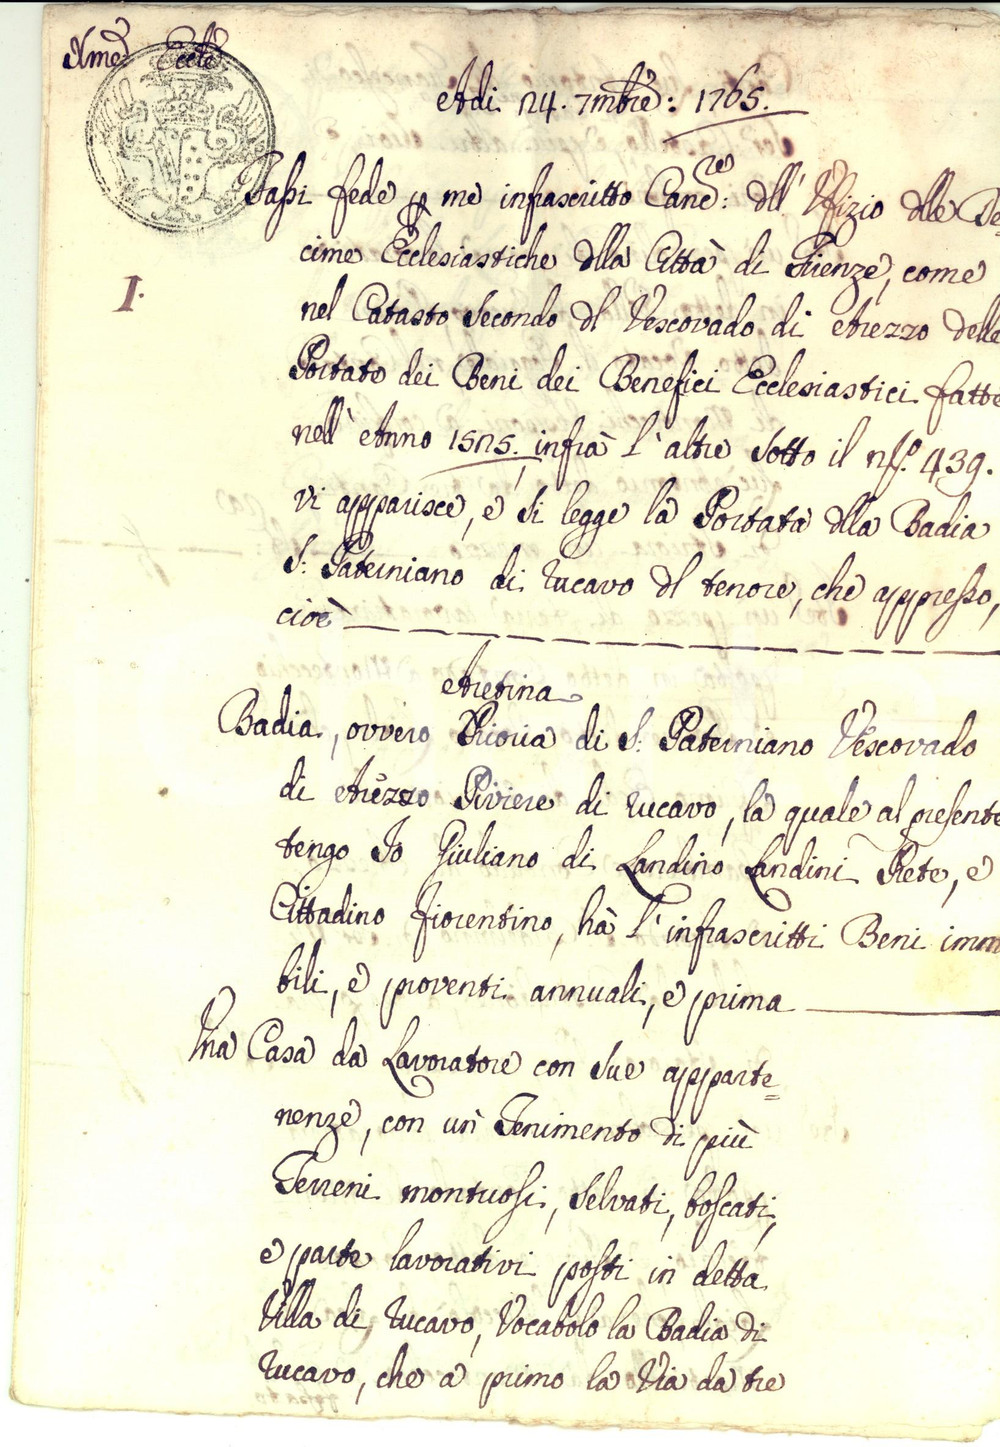 Xme Eccle
Adi 24. 7mbre: 1765.
I.
Fassi fede p me infrascritto Cance: dll' Ufizio dlle De=
cime Ecclesiastiche dlla Città di Firenze, come
nel Catasto Secondo dl Vescovado di Arezzo delle
Portate dei Beni dei Benefici Ecclesiastici fatte
nell' Anno 1525. infrà l'altre Sotto il n̄o. 439.
vi apparisce, e si legge la Portata dlla Badia
S. Paterniano di Tucavo dl tenore, che appresso,
cioè
Aretina
Badia, ovvero Prioria di S. Paterniano Vescovado
di Arezzo Piviere di Tucavo, la quale al presente
tengo Io Giuliano di Landino Landini Prete, e
Cittadino Fiorentino, hà l'infrascritti Beni immo
bili, e proventi annuali, e prima
Una Casa da Lavoratore con sue apparte=
nenze, con un Tenimento di più
Terreni montuosi, selvati, boscati,
e parte lavorativi posti in detta
Villa di Tucavo, Vocabolo la Badia di
Tucavo, che a primo la Via da tre